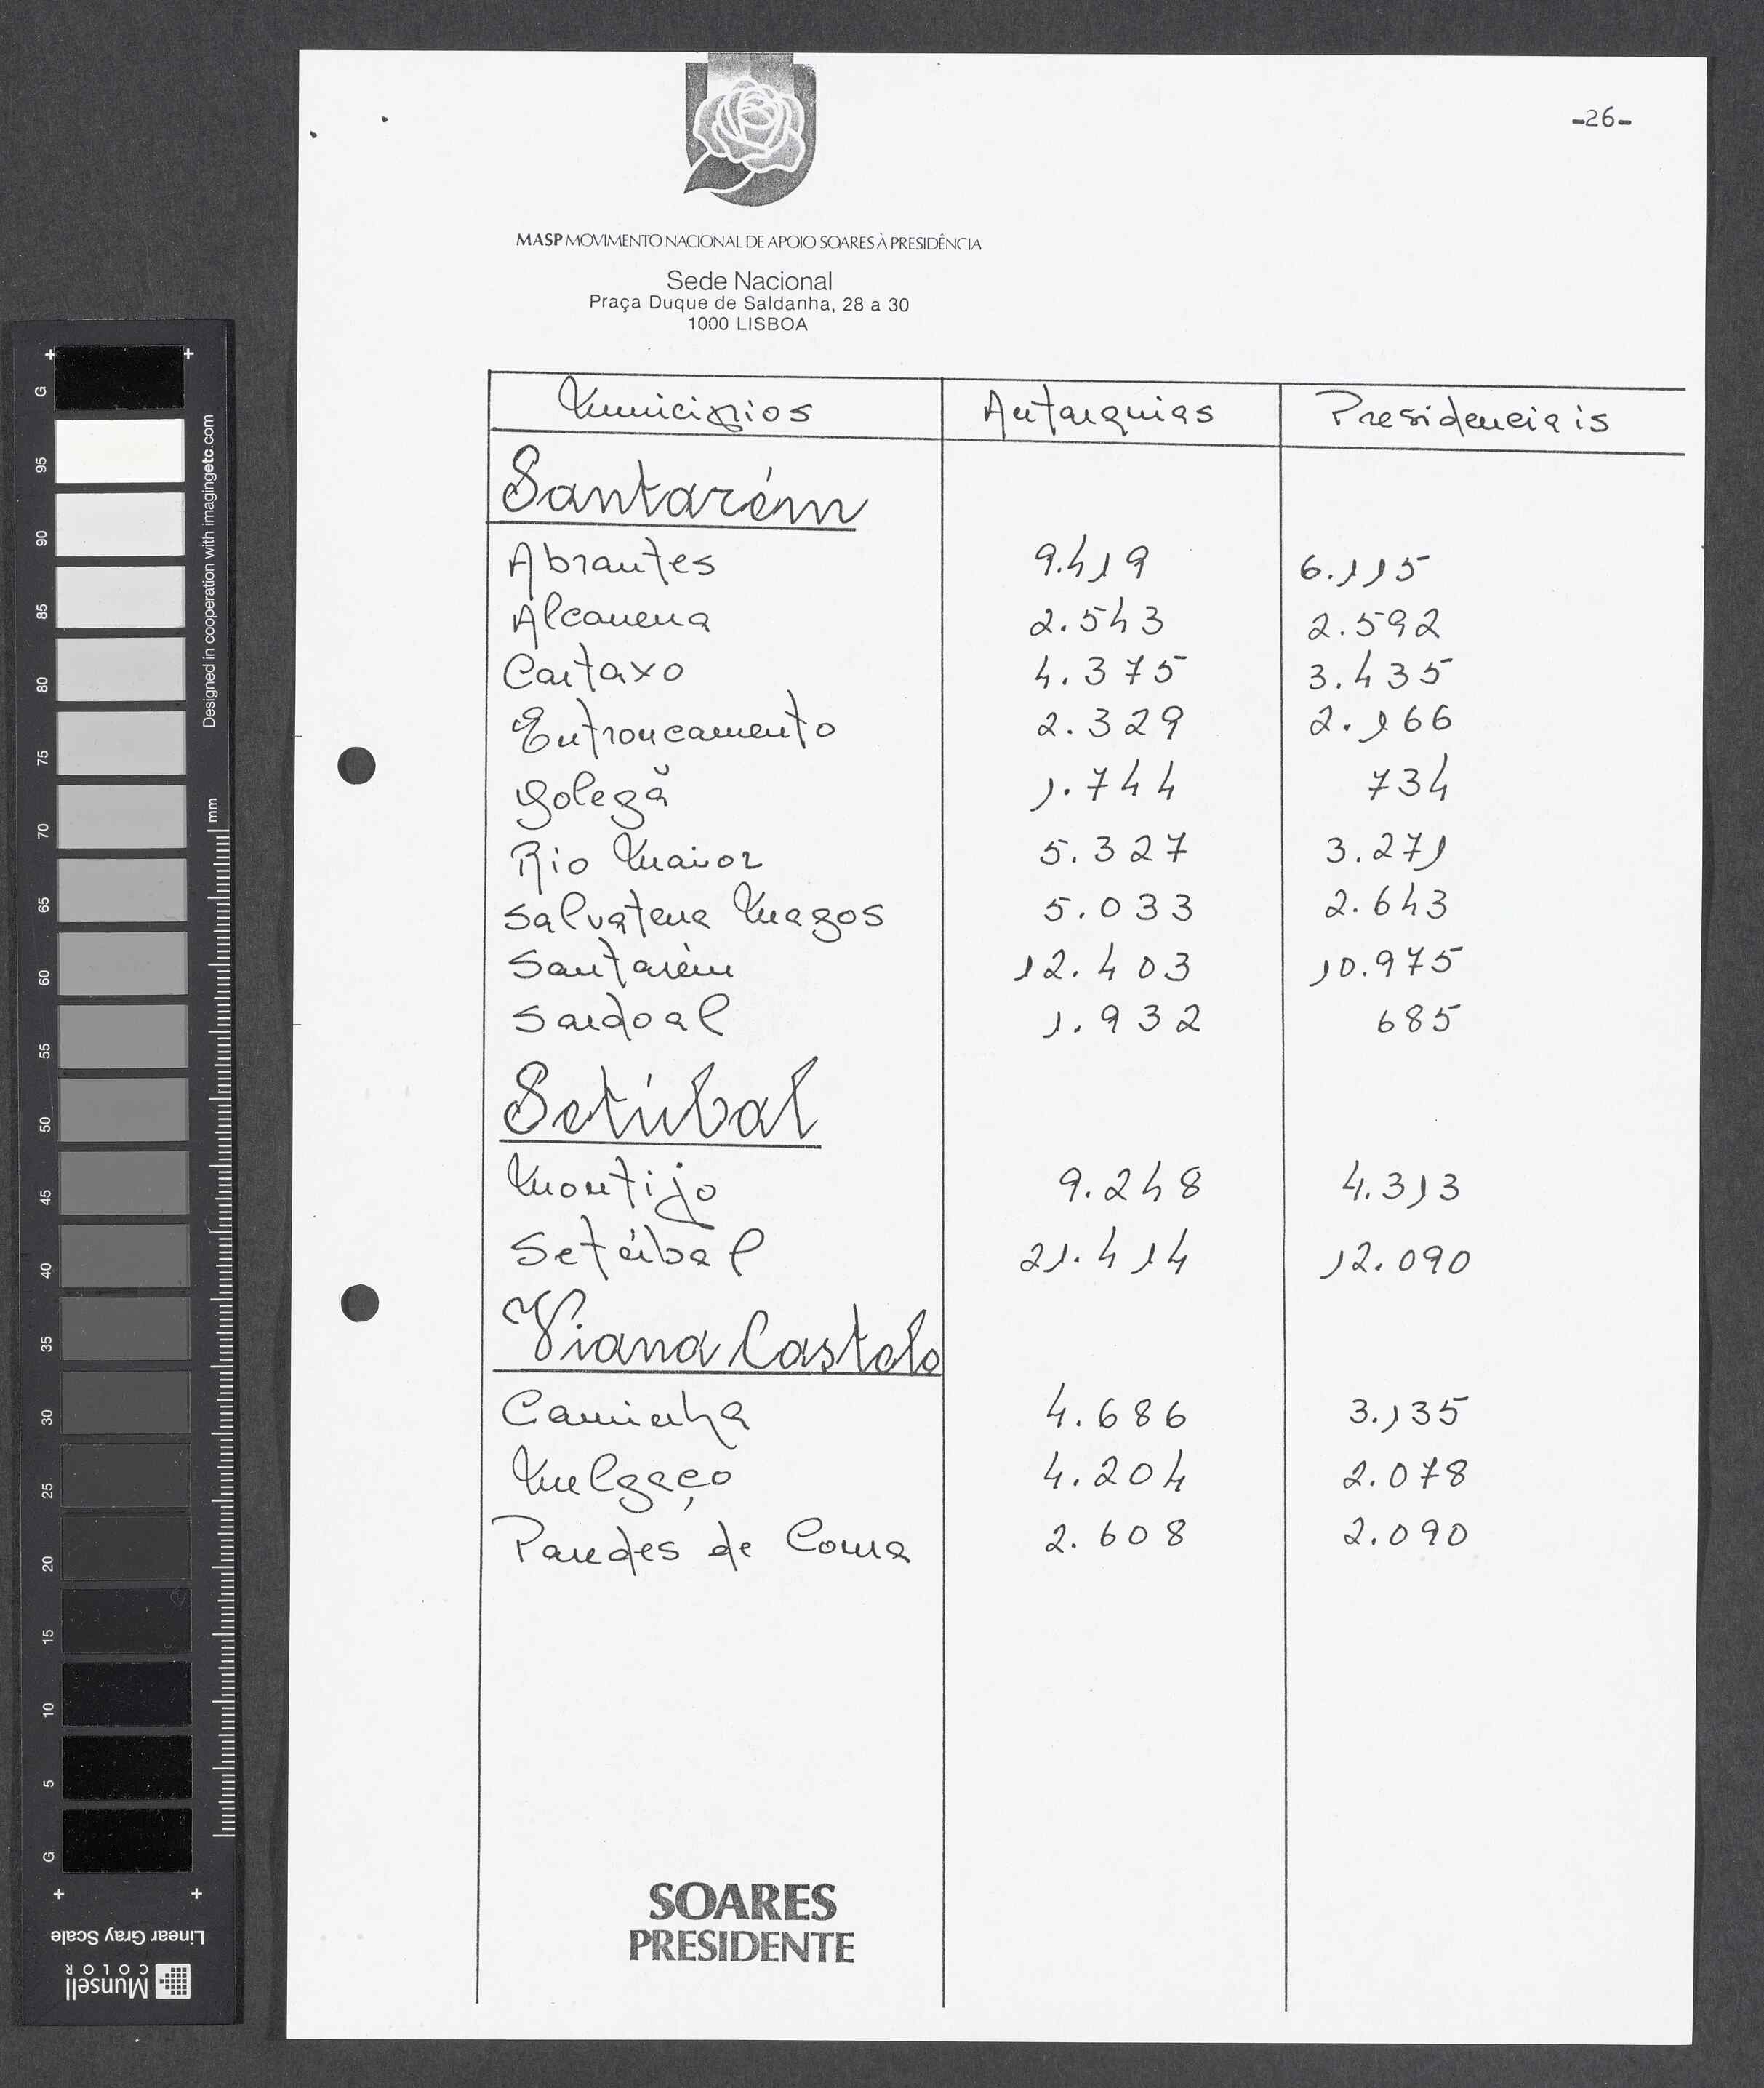 -26-
MASP MOVIMENTO NACIONAL DE APOIO SOARES À PRESIDÊNCIA
Sede Nacional
Praça Duque de Saldanha, 28 a 30
1000 LISBOA
Municipios Autarquias Presidenciais
Santarém
Abrantes 9.419 6.115
Alcanena 2.543 2.592
Cartaxo 4.375 3.435
Entroncamento 2.329 2.166
Golegã 1.744 734
Rio Maior 5.327 3.271
Salvaterra Magos 5.033 2.643
Santarém 12.403 10.975
Sardoal 1.932 685
Setúbal
Montijo 9.248 4.313
Setúbal 21.414 12.090
Viana Castelo
Caminha 4.686 3.135
Melgaço 4.204 2.078
Paredes de Coura 2.608 2.090
SOARES
PRESIDENTE
G 95 90 85 80 75 70 65 60 55 50 45 40 35 30 25 20 15 10 5 G
Designed in cooperation with imagingetc.com
mm
Linear Gray Scale
Munsell
COLOR